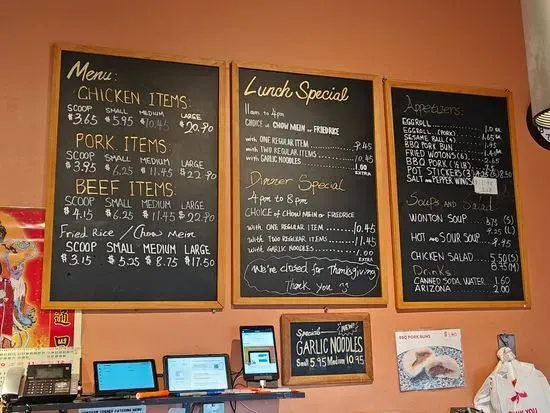 Menu:
CHICKEN ITEMS:
SCOOP SMALL MEDIUM LARGE
$3.65 $5.95 $10.45 $20.90
PORK ITEMS:
SCOOP SMALL MEDIUM LARGE
$3.95 $6.25 $11.45 $22.90
BEEF ITEMS:
SCOOP SMALL MEDIUM LARGE
$4.15 $6.25 $11.45 $22.90
Fried Rice / Chow Mein
SCOOP SMALL MEDIUM LARGE
$3.15 $5.25 $8.75 $17.50
Lunch Special
11am to 4pm
CHOICE of CHOW MEIN or FRIEDRICE
with ONE REGULAR ITEM 9.45
with TWO REGULAR ITEMS 10.45
with GARLIC NOODLES 1.00
EXTRA
Dinner Special
4pm to 8pm
CHOICE of CHOW MEIN or FRIEDRICE
with ONE REGULAR ITEM 10.45
with TWO REGULAR ITEMS 11.45
with GARLIC NOODLES 1.00
EXTRA
We're closed for Thanksgiving
Thank you
Appetizers:
EGGROLL 1.0
EGGROLL (PORK)
SESAME BALL (4) 1.65
BBQ PORK BUN 1.95
FRIED WOTONS (6)
BBQ PORK (1/2LB)
POT STICKERS (3) 8.50
SALT and PEPPER WINGS
Soups and Salad
WONTON SOUP (S)
(L)
HOT and SOUR SOUP
CHICKEN SALAD 5.50 (S)
8.75 (M)
Drinks:
CANNED SODA, WATER 1.60
ARIZONA 2.00
Special NEW!
GARLIC NOODLES
Small 5.95 Medium 10.95
BBQ PORK BUNS $1.90